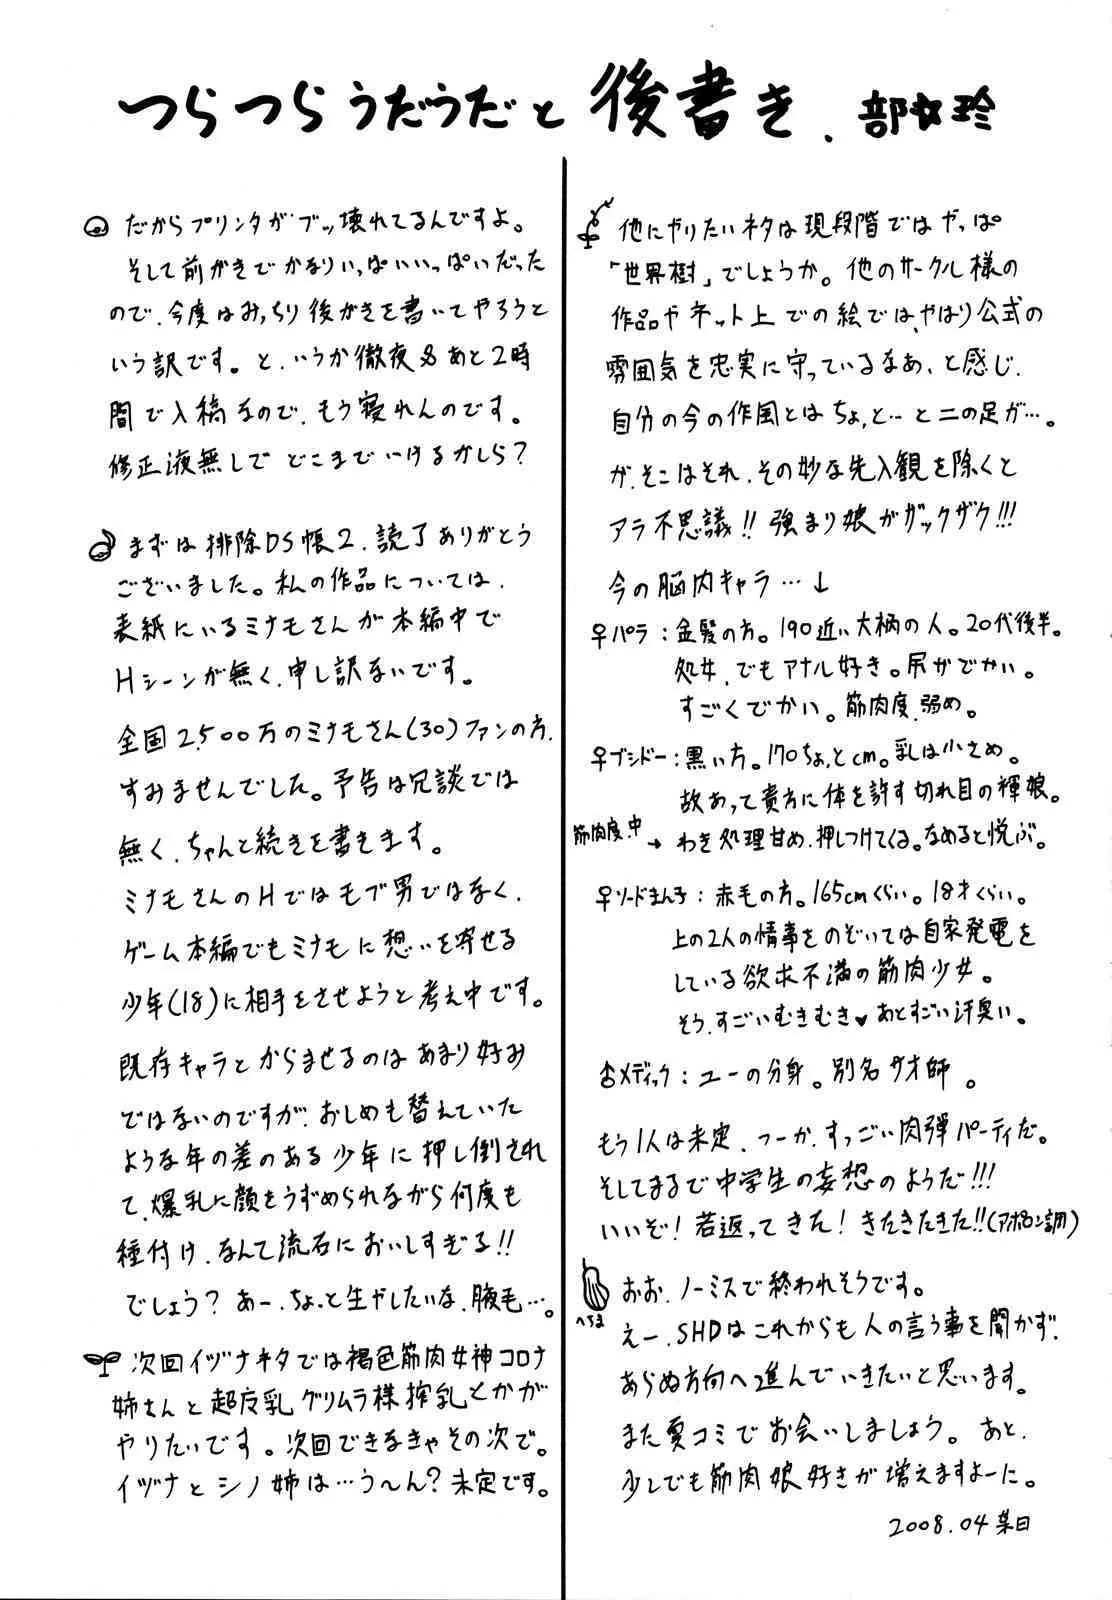 つらつらうだうだと後書き、部☆玲
だからプリンタがブッ壊れてるんですよ。
そして前がきでかなりいっぱいいっぱいだった
ので、今度はみっちり後がきを書いてやろうと
いう訳です。と、いうか徹夜&あと2時
間で入稿なので、もう寝れんのです。
修正液無しでどこまでいけるかしら?
まずは排除DS帳2、読了ありがとう
ございました。私の作品については、
表紙にいるミナモさんが本編中で
Hシーンが無く、申し訳ないです。
全国2,500万のミナモさん(30)ファンの方、
すみませんでした。予告は冗談では
無く、ちゃんと続きを書きます。
ミナモさんのHではモブ男ではなく、
ゲーム本編でもミナモに想いを寄せる
少年(18)に相手をさせようと考え中です。
既存キャラとからませるのはあまり好み
ではないのですが、おしめも替えていた
ような年の差のある少年に押し倒され
て、爆乳に顔をうずめられながら何度も
種付け、なんて流石においしすぎる!!
でしょう?あー、ちょっと生やしたいな、腋毛…。
次回イヅナネタでは褐色筋肉女神コロナ
姉さんと超反乳グリムラ様搾乳とかが
やりたいです。次回できなきゃその次で。
イヅナとシノ姉は…う～ん?未定です。
他にやりたいネタは現段階ではやっぱ
「世界樹」でしょうか。他のサークル様の
作品やネット上での絵では、やはり公式の
雰囲気を忠実に守っているなあ、と感じ、
自分の今の作風とはちょっと…と二の足が…。
が、そこはそれ、その妙な先入観を除くと
アラ不思議!!強まり娘がザックザク!!!
今の脳内キャラ…↓
♀パラ:金髪の方。190近い大柄の人。20代後半。
処女、でもアナル好き。尻がでかい。
すごくでかい。筋肉度、弱め。
♀ブシドー:黒い方。170ちょっとcm。乳は小さめ。
故あって貴方に体を許す切れ目の褌娘。
筋肉度、中→わき処理甘め、押しつけてくる。なめると悦ぶ。
♀ソードまん子:赤毛の方。165cmくらい。18才くらい。
上の2人の情事をのぞいては自家発電を
している欲求不満の筋肉少女。
そう、すごいむきむき♥あとすごい汗臭い。
♂メディック:ユーの分身。別名サオ師。
もう1人は未定、つーか、すっごい肉弾パーティだ。
そしてまるで中学生の妄想のようだ!!!
いいぞ!若返ってきた!きたきたきた!!(アポロン調)
へちま
おお、ノーミスで終われそうです。
えー、SHDはこれからも人の言う事を聞かず、
あらぬ方向へ進んでいきたいと思います。
また夏コミでお会いしましょう。あと、
少しでも筋肉娘好きが増えますよーに。
2008.04某日